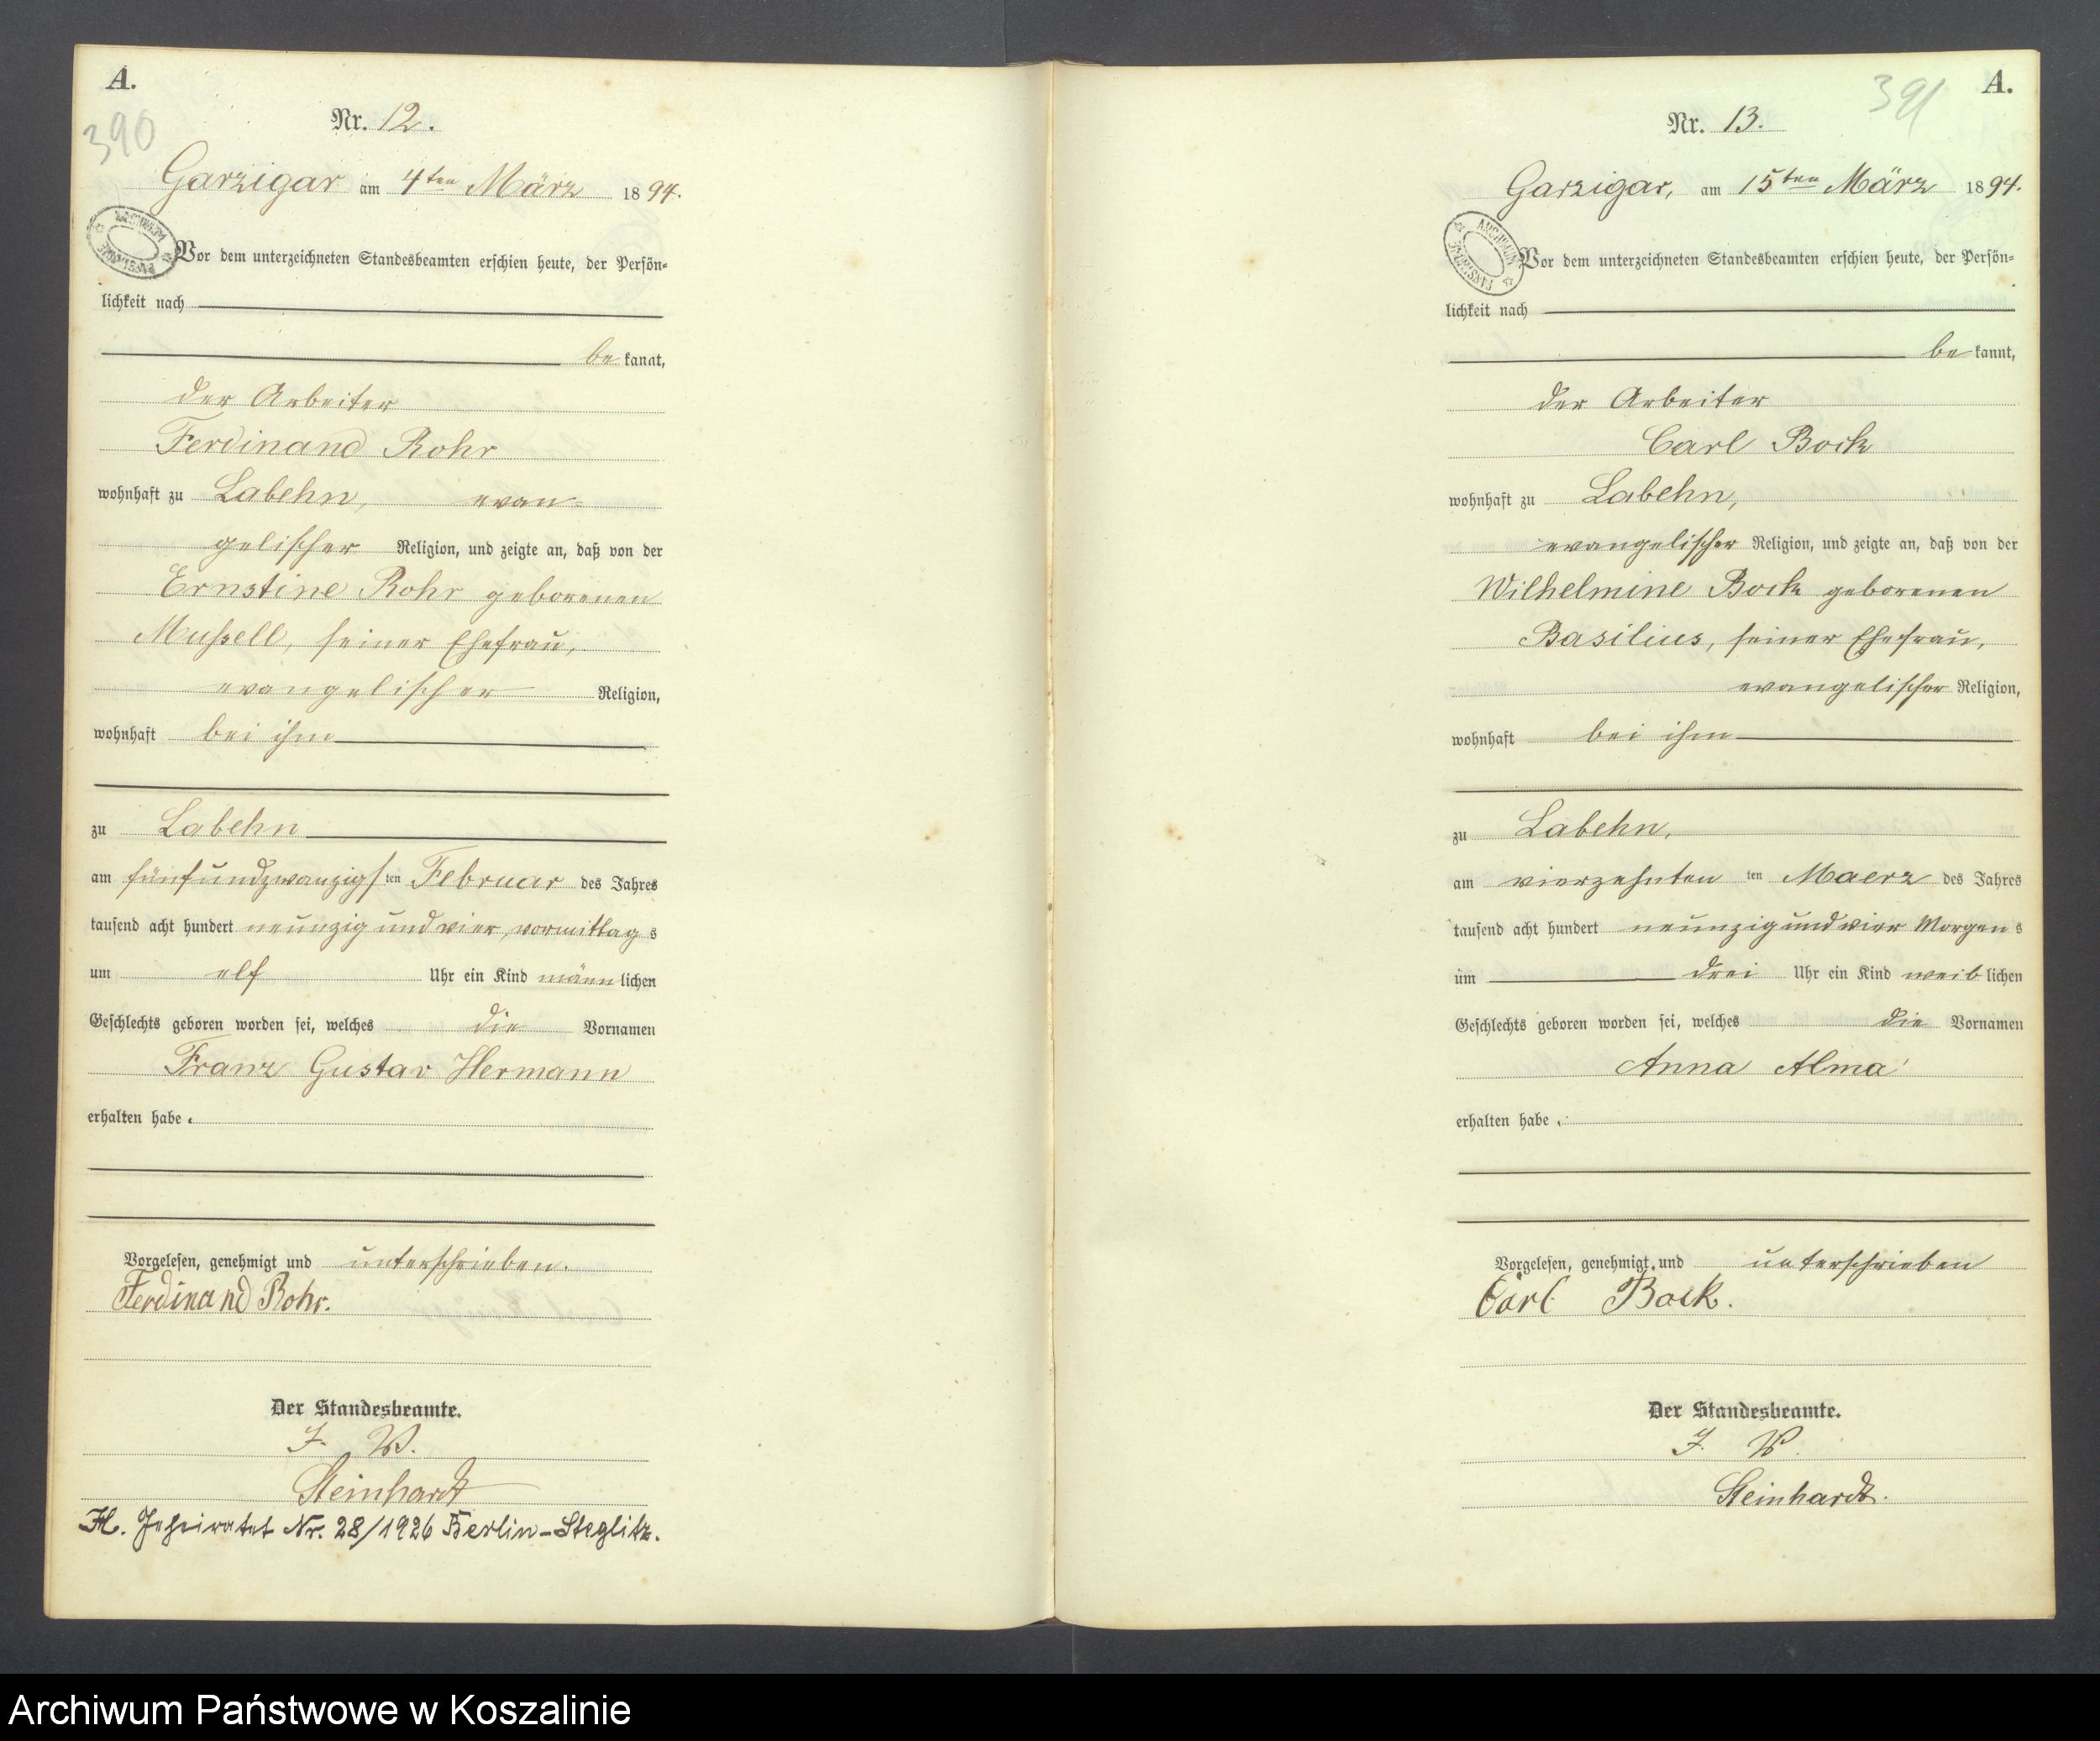 A.
390
Nr. 12.
Garzigar am 4ten März 1894.
ARCHIWUM PAŃSTWOWE
Vor dem unterzeichneten Standesbeamten erschien heute, der Persön-
lichkeit nach
be kannt,
der Arbeiter
Ferdinand Rohr
wohnhaft zu Labehn, evan-
gelischer Religion, und zeigte an, daß von der
Ernstine Rohr geborenen
Mußell, seiner Ehefrau,
evangelischer Religion,
wohnhaft bei ihm
zu Labehn
am fünfundzwanzigsten Februar des Jahres
tausend acht hundert neunzig und vier, vormittags
um elf Uhr ein Kind männlichen
Geschlechts geboren worden sei, welches die Vornamen
Franz Gustav Hermann
erhalten habe.
Vorgelesen, genehmigt und unterschrieben.
Ferdinand Rohr.
Der Standesbeamte.
J. V.
Steinhardt
Geheiratet Nr. 28/1926 Berlin-Steglitz.
A.
391
Nr. 13.
Garzigar, am 15ten März 1894.
ARCHIWUM PAŃSTWOWE
Vor dem unterzeichneten Standesbeamten erschien heute, der Persön-
lichkeit nach
be kannt,
der Arbeiter
Carl Bock
wohnhaft zu Labehn,
evangelischer Religion, und zeigte an, daß von der
Wilhelmine Bock geborenen
Basilius, seiner Ehefrau,
evangelischer Religion,
wohnhaft bei ihm
zu Labehn,
am vierzehnten ten Maerz des Jahres
tausend acht hundert neunzig und vier Morgens
um drei Uhr ein Kind weiblichen
Geschlechts geboren worden sei, welches die Vornamen
Anna Alma
erhalten habe.
Vorgelesen, genehmigt und unterschrieben
Carl Bock.
Der Standesbeamte.
J. V.
Steinhardt.
Archiwum Państwowe w Koszalinie